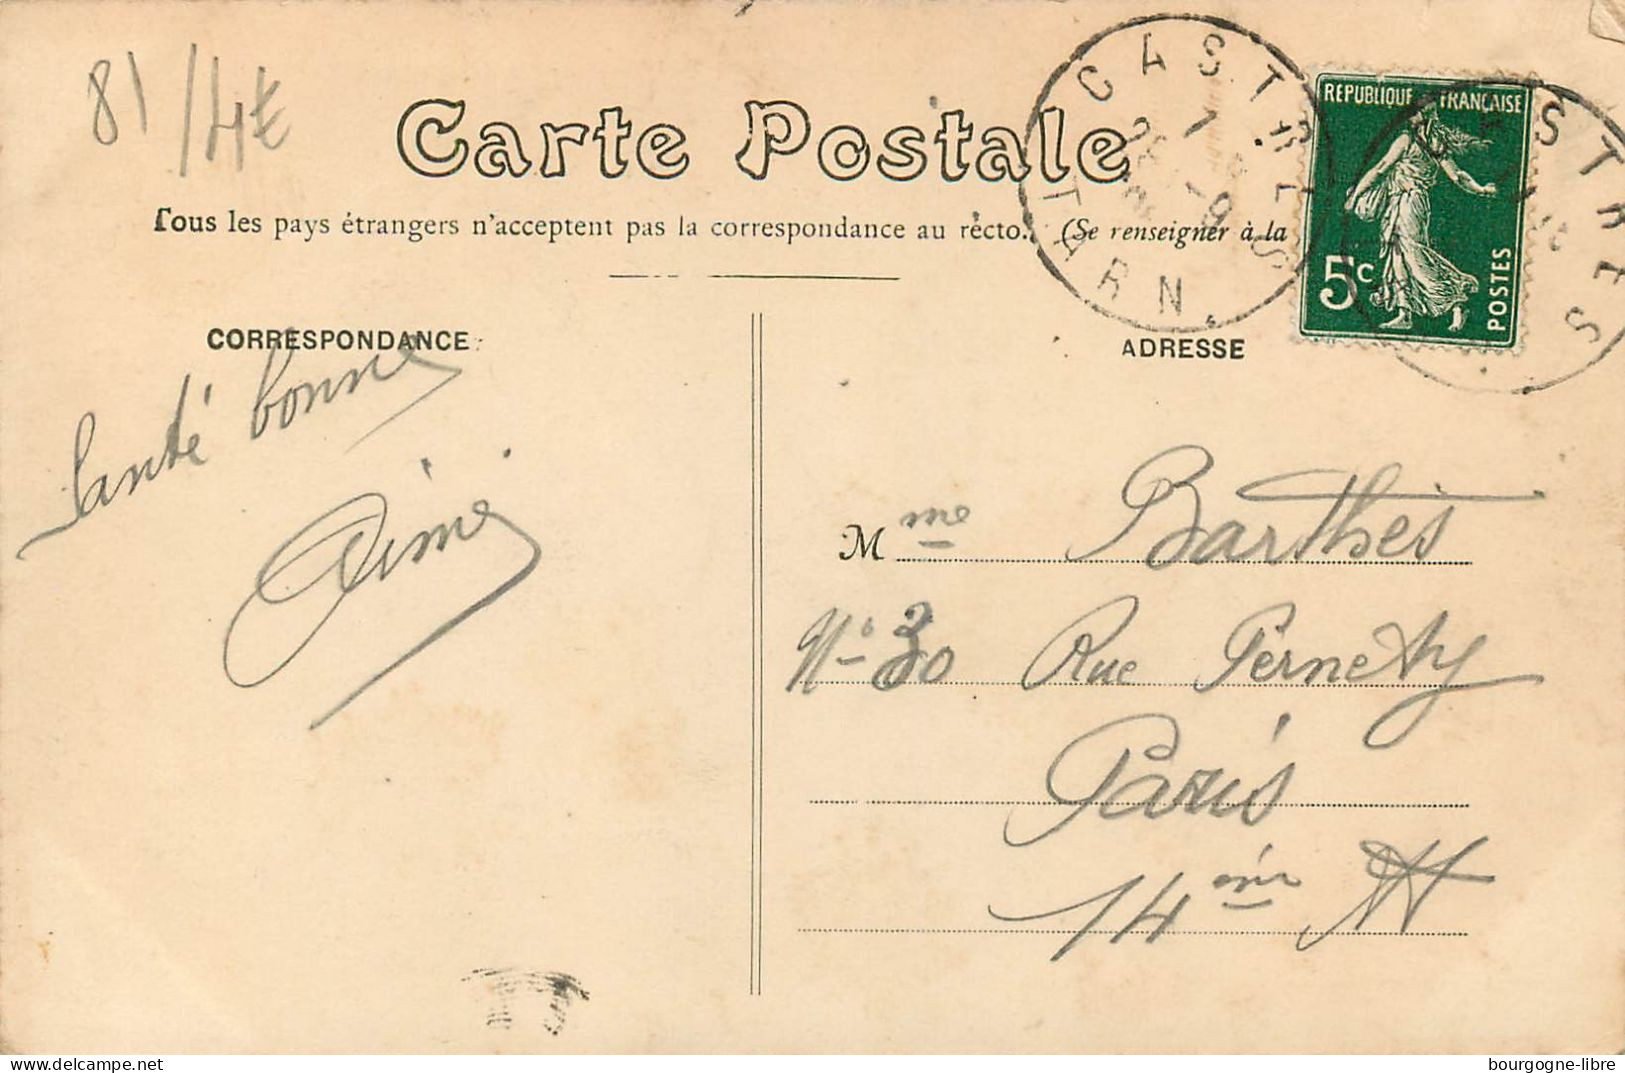 81/4€
Carte Postale
Tous les pays étrangers n'acceptent pas la correspondance au recto. (Se renseigner à la
CASTRES
TARN
REPUBLIQUE FRANÇAISE
5c
POSTES
CASTRES
CORRESPONDANCE
ADRESSE
Santé bonne
Aimé
Mme Barthès
N° 30 Rue Pernety
Paris
14
bourgogne-libre